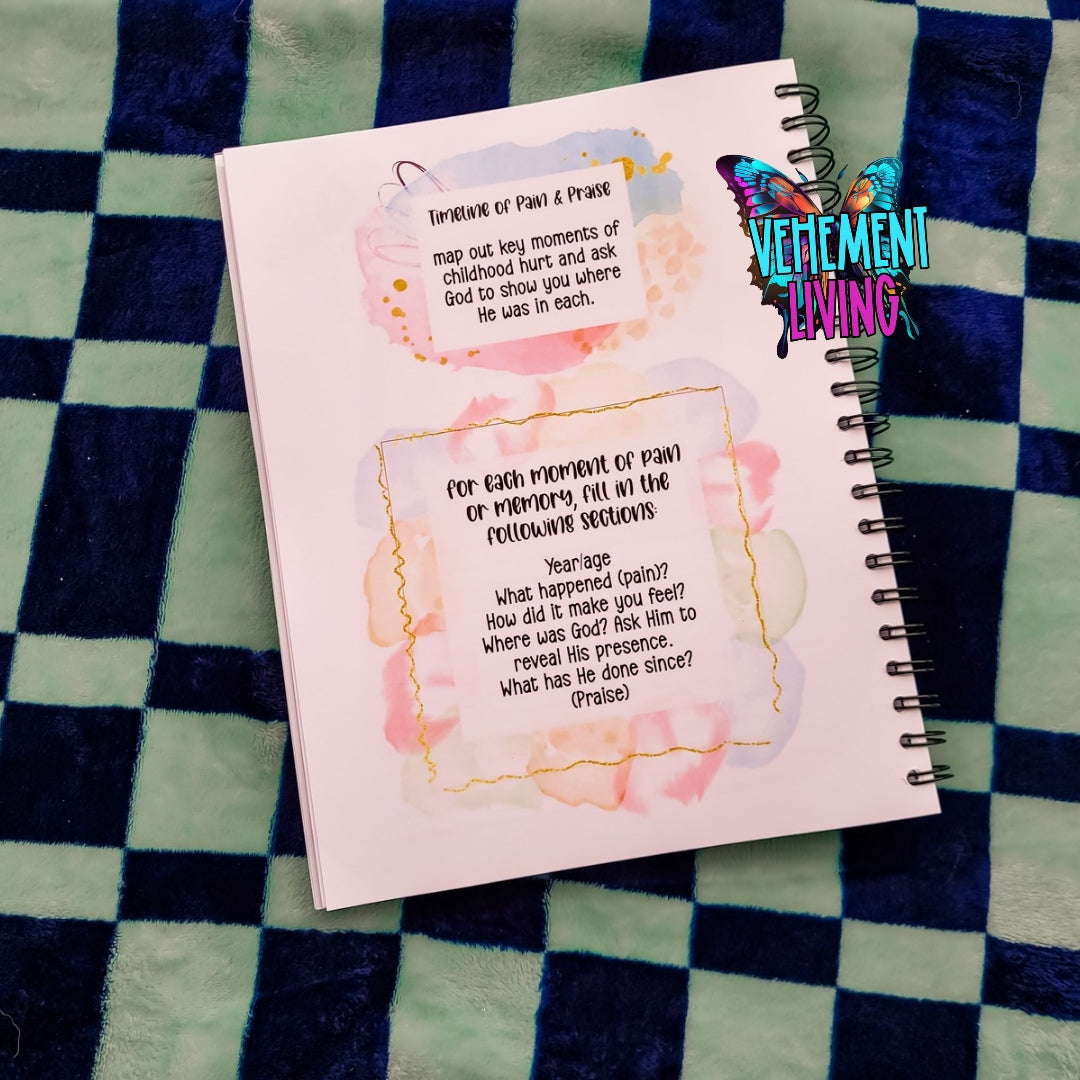 Timeline of Pain & Praise
map out key moments of
childhood hurt and ask
God to show you where
He was in each.
for each moment of pain
or memory, fill in the
following sections:
Year/age
What happened (pain)?
How did it make you feel?
Where was God? Ask Him to
reveal His presence.
What has He done since?
(Praise)
VEHEMENT
LIVING